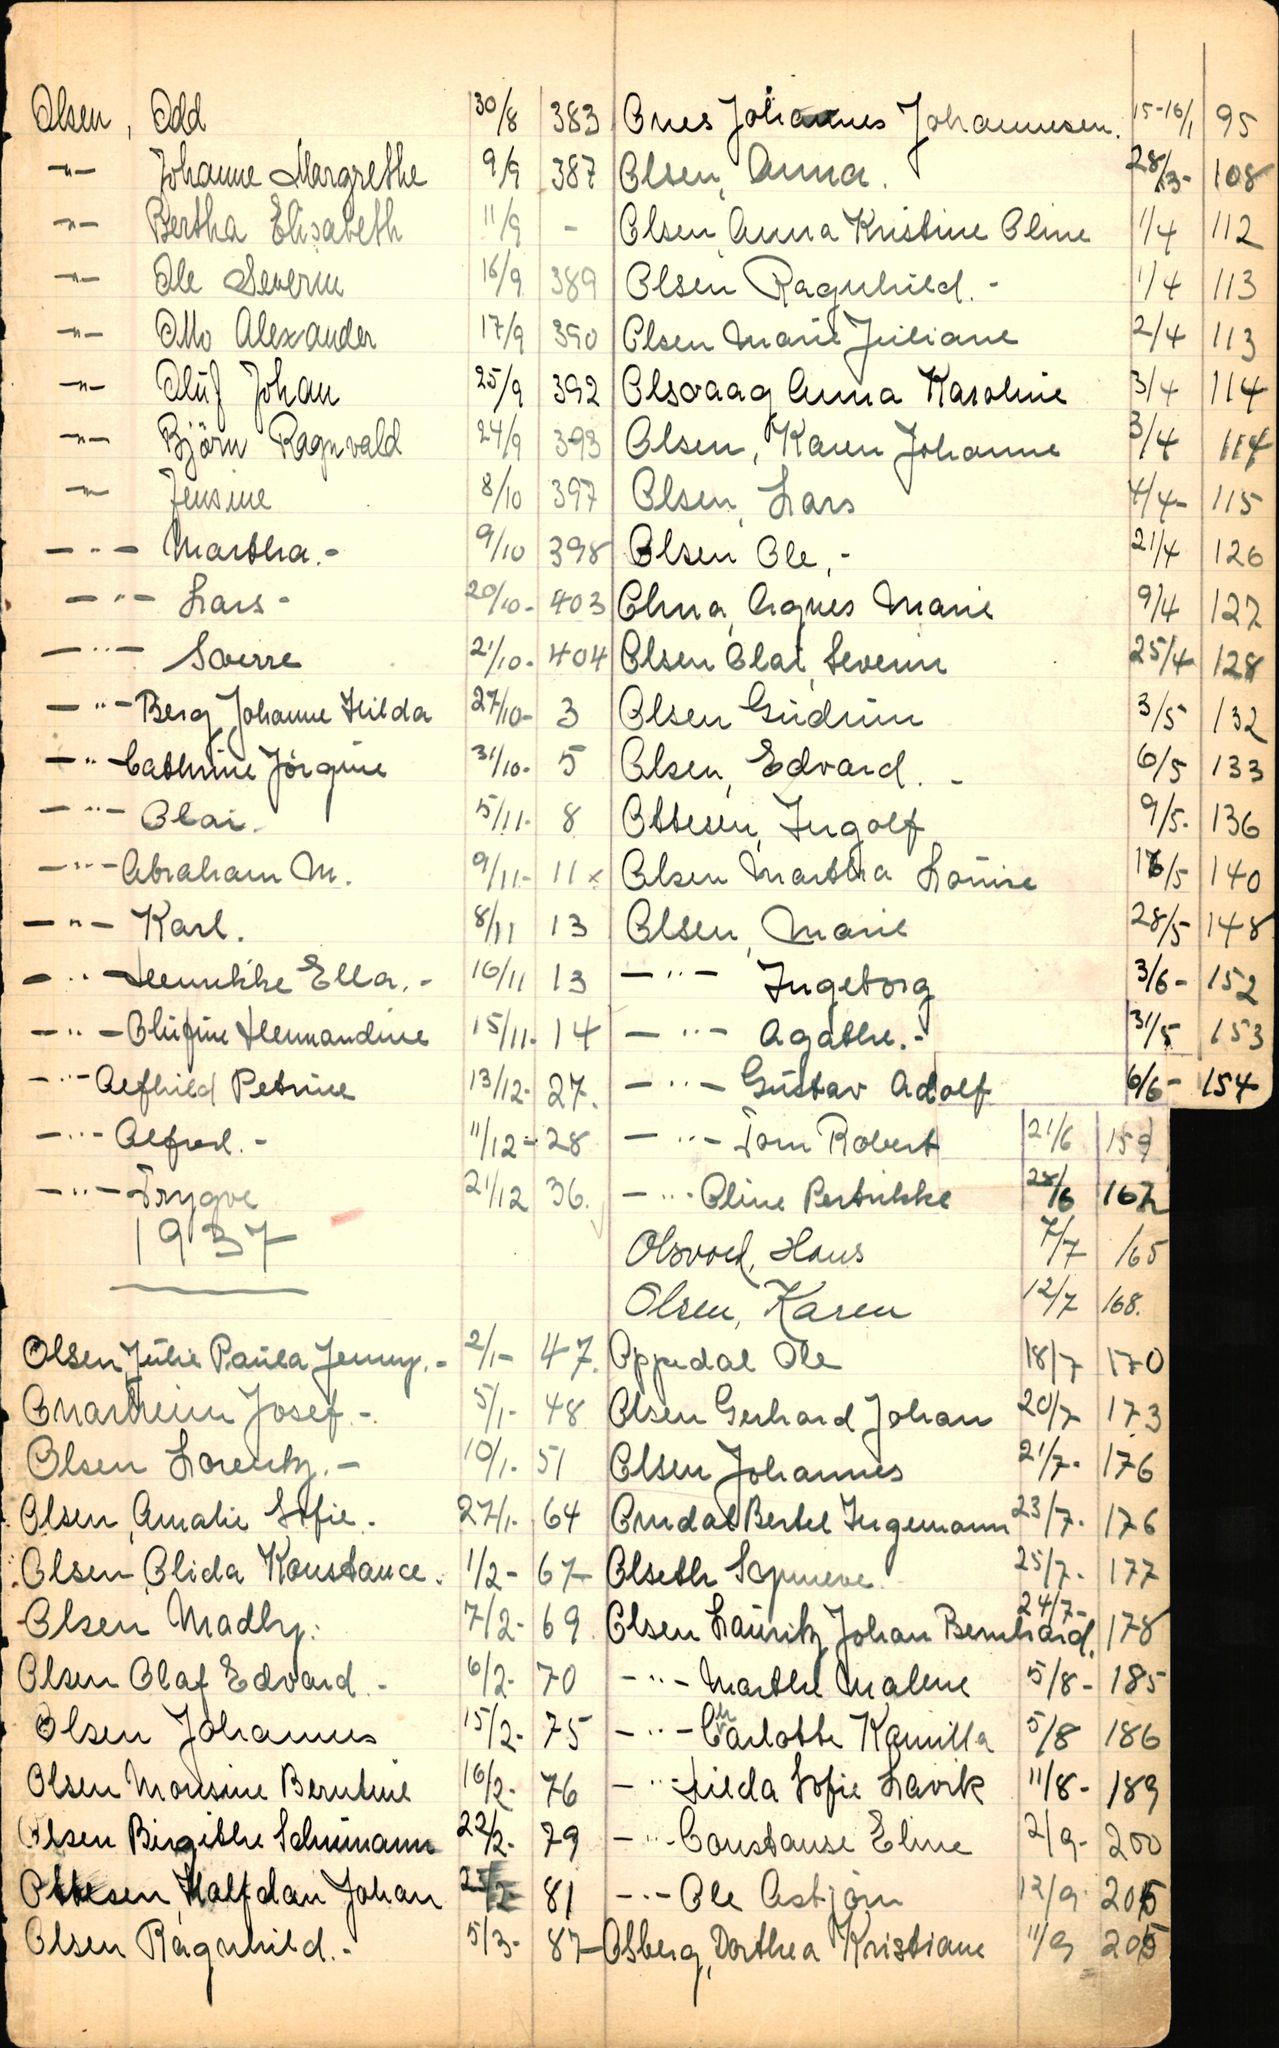 Olsen, Odd 30/8 383
-"- Johanne Margrethe 9/9 387
-"- Bertha Elisabeth 11/9 -
-"- Ole Severin 16/9 389
-"- Otto Alexander 17/9 390
-"- Oluf Johan 25/9 392
-"- Björn Ragnvald 24/9 393
-"- Jensine 8/10 397
-"- Martha.- 9/10 398
-"- Lars- 20/10- 403
-"- Sverre 21/10- 404
-"- Berg, Johanne Hilda 27/10- 3
-"- Cathrine Jörgine 31/10- 5
-"- Olai. 5/11- 8
-"- Abraham M. 9/11- 11 x
-"- Karl. 8/11 13
-"- Henrikke Ella.- 16/11 13
-"- Olufine Hermandine 15/11- 14
-"- Alfhild Petrine 13/12- 27.
-"- Alfred.- 11/12- 28
-"- Trygve 21/12 36.
1937
Olsen, Julie Paula Jenny.- 2/1- 47.
Josef.- 5/1- 48
Olsen Lorentz.- 10/1- 51
Olsen, Amalie Sofie. 27/1- 64
Olsen, Olida Konstance. 1/2- 67
Olsen Madly. 7/2- 69
Olsen Olaf Edvard.- 6/2- 70
Olsen Johannes 15/2- 75
Olsen Monsine Berntine 16/2- 76
Olsen Birgithe Schumann 22/2- 79
Ottesen, Halfdan Johan 23/2- 81
Olsen Ragnhild.- 5/3- 87
Ones Johannes Johannesen. 15-16/1 95
Olsen, Anna. 28/3- 108
Olsen, Anna Kristine Oline 1/4 112
Olsen Ragnhild.- 1/4 113
Olsen Marie Juliane 2/4 113
Olsvaag Anna Karoline 3/4 114
Olsen, Karen Johanne 3/4 114
Olsen, Lars 4/4- 115
Olsen Ole,- 21/4 126
Agnes Marie 9/4 127
Olsen Olai, Severin 25/4 128
Olsen Gudrun 3/5 132
Olsen, Edvard.- 6/5 133
Ottesen, Ingolf 9/5. 136
Olsen Martha Louise 18/5 140
Olsen, Marie 28/5 148
-"- Ingeborg 3/6- 152
-"- Agathe.- 31/5 153
-"- Gustav Adolf 6/6- 154
-"- Tom Robert 21/6 159
-"- Oline Pertrikke 28/6 162
Hans 7/7 165
Olsen, Karen 12/7 168.
Oppedal Ole 18/7 170
Olsen Gerhard Johan 20/7 173
Olsen Johannes 21/7- 176
Bertel Ingemann 23/7- 176
Olseth Synneve 25/7- 177
Olsen Lauritz Johan Bernhard, 24/7- 178
-"- Marthe Malene 5/8- 185
-"- Charlotte Kamilla 5/8 186
-"- Hilda Sofie Lavik 11/8- 189
-"- Constanse Eline 2/9- 200
-"- Ole Asbjørn 12/9 205
Osberg, Dorthea Kristiane 11/9 205